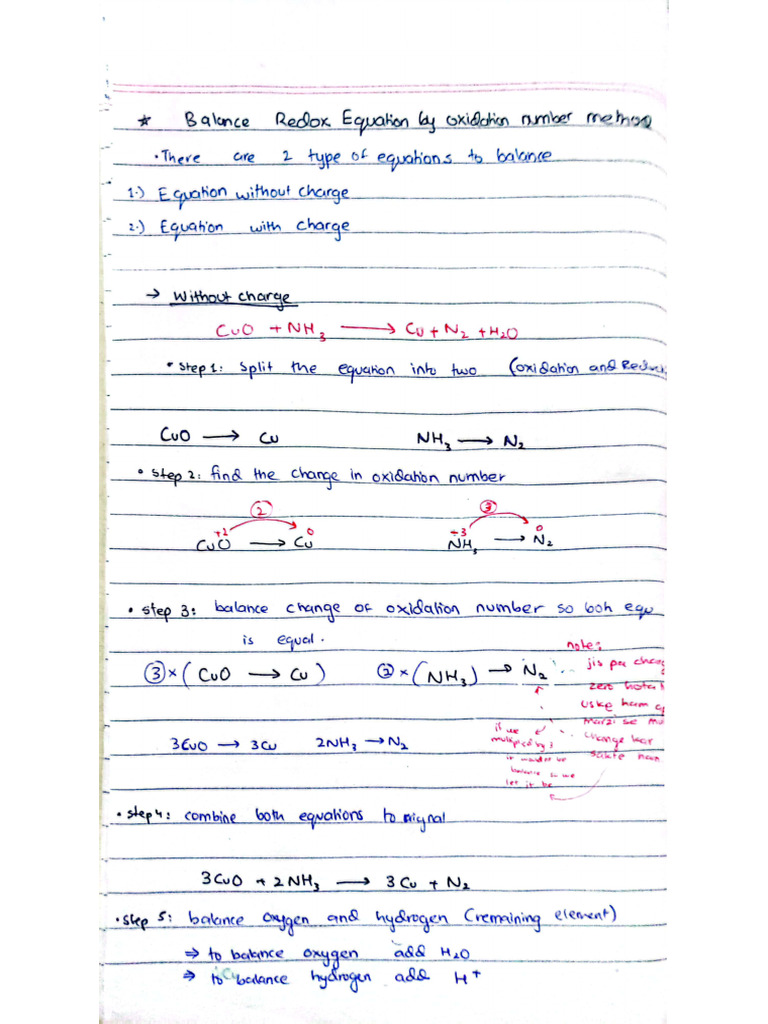 * Balance Redox Equation by oxidation number method
• There are 2 type of equations to balance
1.) Equation without charge
2.) Equation with charge
→ Without charge
CuO + NH₃ ⟶ Cu + N₂ + H₂O
• Step 1: Split the equation into two (oxidation and Reduc
CuO ⟶ Cu NH₃ ⟶ N₂
• Step 2: find the change in oxidation number
② ③
+2 0 +3 0
CuO ⟶ Cu NH₃ ⟶ N₂
• Step 3: balance change of oxidation number so boh equ
is equal.
note:
③ × (CuO ⟶ Cu) ② × (NH₃) → N₂
jis par charg
zero hota
uske ham
marzi se
change kar
sakte hain
3CuO → 3Cu 2NH₃ → N₂
if we
multipied by
it
balance so we
let it be
• Step 4: combine both equations to
3CuO + 2NH₃ ⟶ 3Cu + N₂
• Step 5: balance oxygen and hydrogen (remaining element)
⇒ to balance oxygen add H₂O
⇒ to balance hydrogen add H⁺